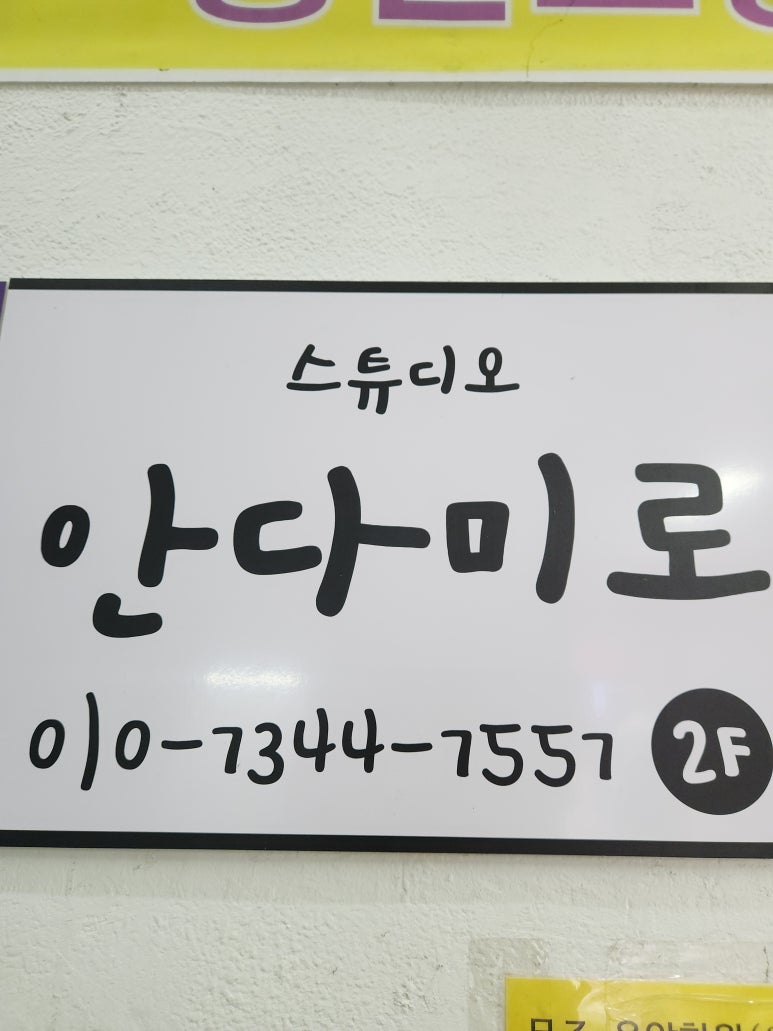 스튜디오
안다미로
010-7344-7557
2F